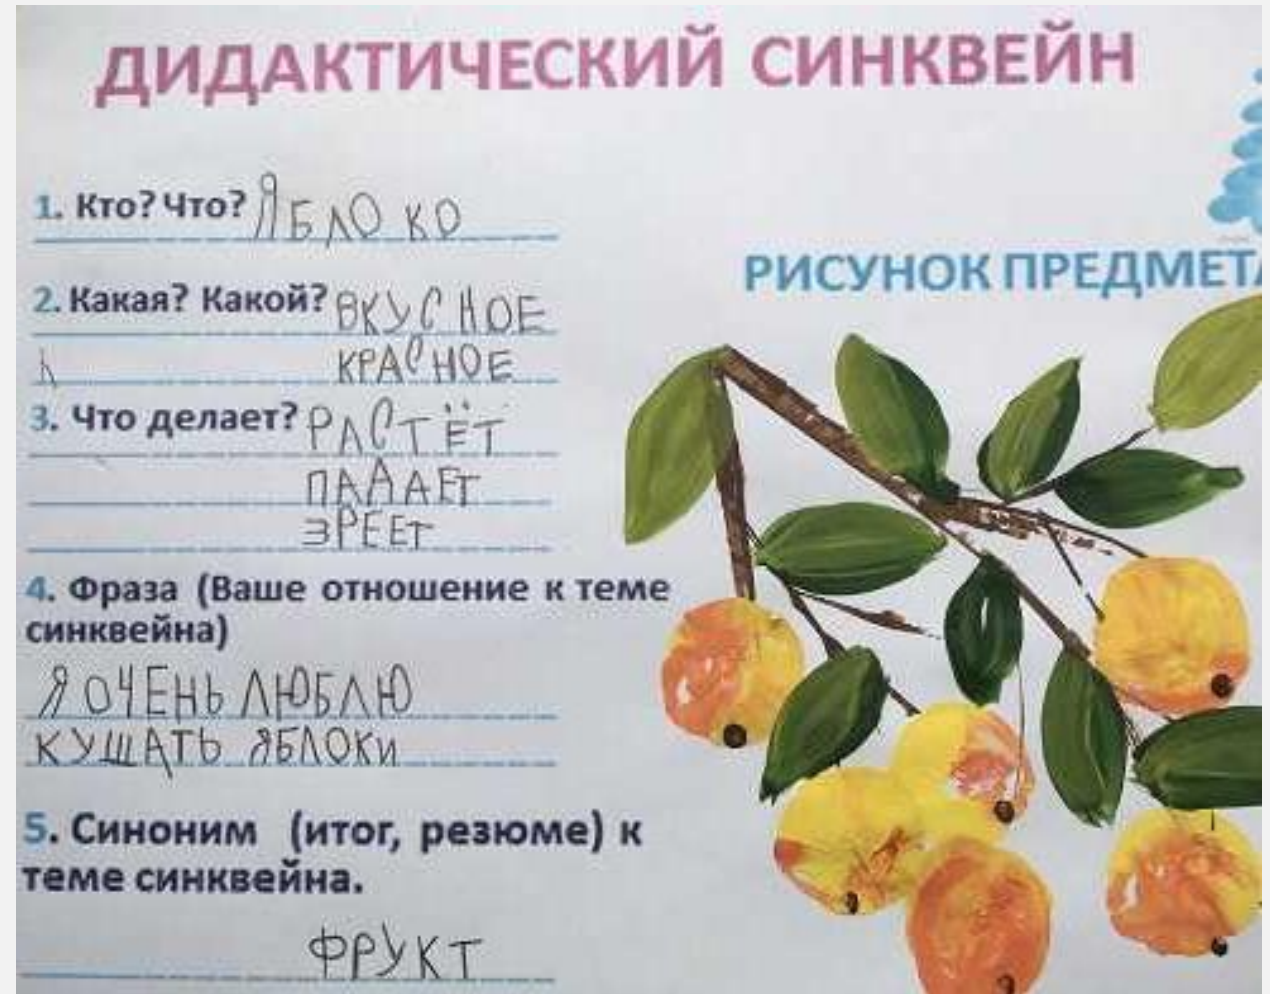 ДИДАКТИЧЕСКИЙ СИНКВЕЙН
1. Кто? Что? ЯБЛОКО
РИСУНОК ПРЕДМЕТА
2. Какая? Какой? ВКУСНОЕ
КРАСНОЕ
3. Что делает? РАСТЁТ
ПАДАЕТ
ЗРЕЕТ
4. Фраза (Ваше отношение к теме
синквейна)
Я ОЧЕНЬ ЛЮБЛЮ
КУШАТЬ ЯБЛОКИ
5. Синоним (итог, резюме) к
теме синквейна.
ФРУКТ